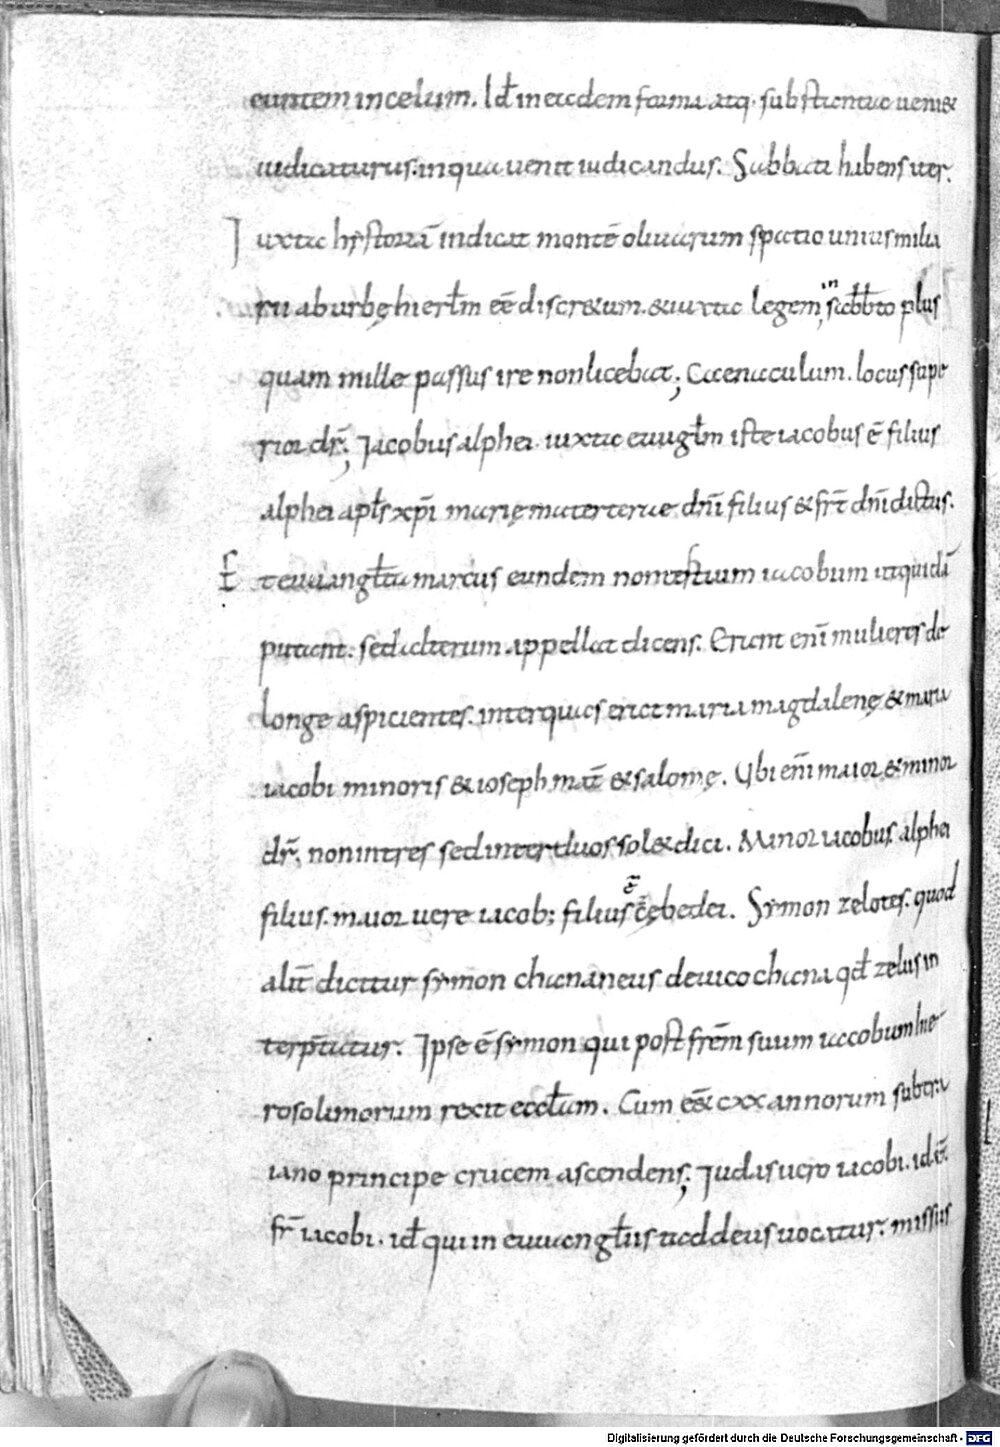 euntem in celum. Id̄ in eadem forma atq; substantia ueni&
iudicaturus. in qua uenit iudicandus. Sabbati habens iter.
Iuxta hystoriā indicat montē oliuarum spatio unius milia
rii ab urbę hierl̄m eē discr&um. & iuxta legem in sabb̄to plus
quam mille passus ire non licebat; Cacenaculum. locus supe
rior dr̄; Iacobus alphei iuxta euugl̄m iste iacobus ē filius
alphei apl̄s xp̄i marię matertere dn̄i filius & fr̄t dn̄i dictus.
Et euuangl̄ta marcus eundem non tertium iacobum ut quidā
putant. sed alterum appellat dicens. Erant enī mulieres de
longe aspicientes. inter quas erat maria magdalenę & maria
iacobi minoris & ioseph mat̄ & salomę. Ubi enī maior & minor
dr̄. non intres sed inter duos sol& dici. Minor iacobus alphei
filius. maior uere iacob; filius ē zębedei. Symon zelotes. quod
alit̄ dicitur symon chananeus deuico chana qd̄ zelus in
terp̄tatur. Ipse ē symon qui post frēm suum iacobum hie
rosolimorum rexit eccl̄am. Cum eē& cxx annorum subtra
iano principe crucem ascendens; Iudas uero iacobi. id ē.
fr̄ iacobi. id̄ qui in euuangl̄iis taddeus uocatur. missus
Digitalisierung gefördert durch die Deutsche Forschungsgemeinschaft - DFG